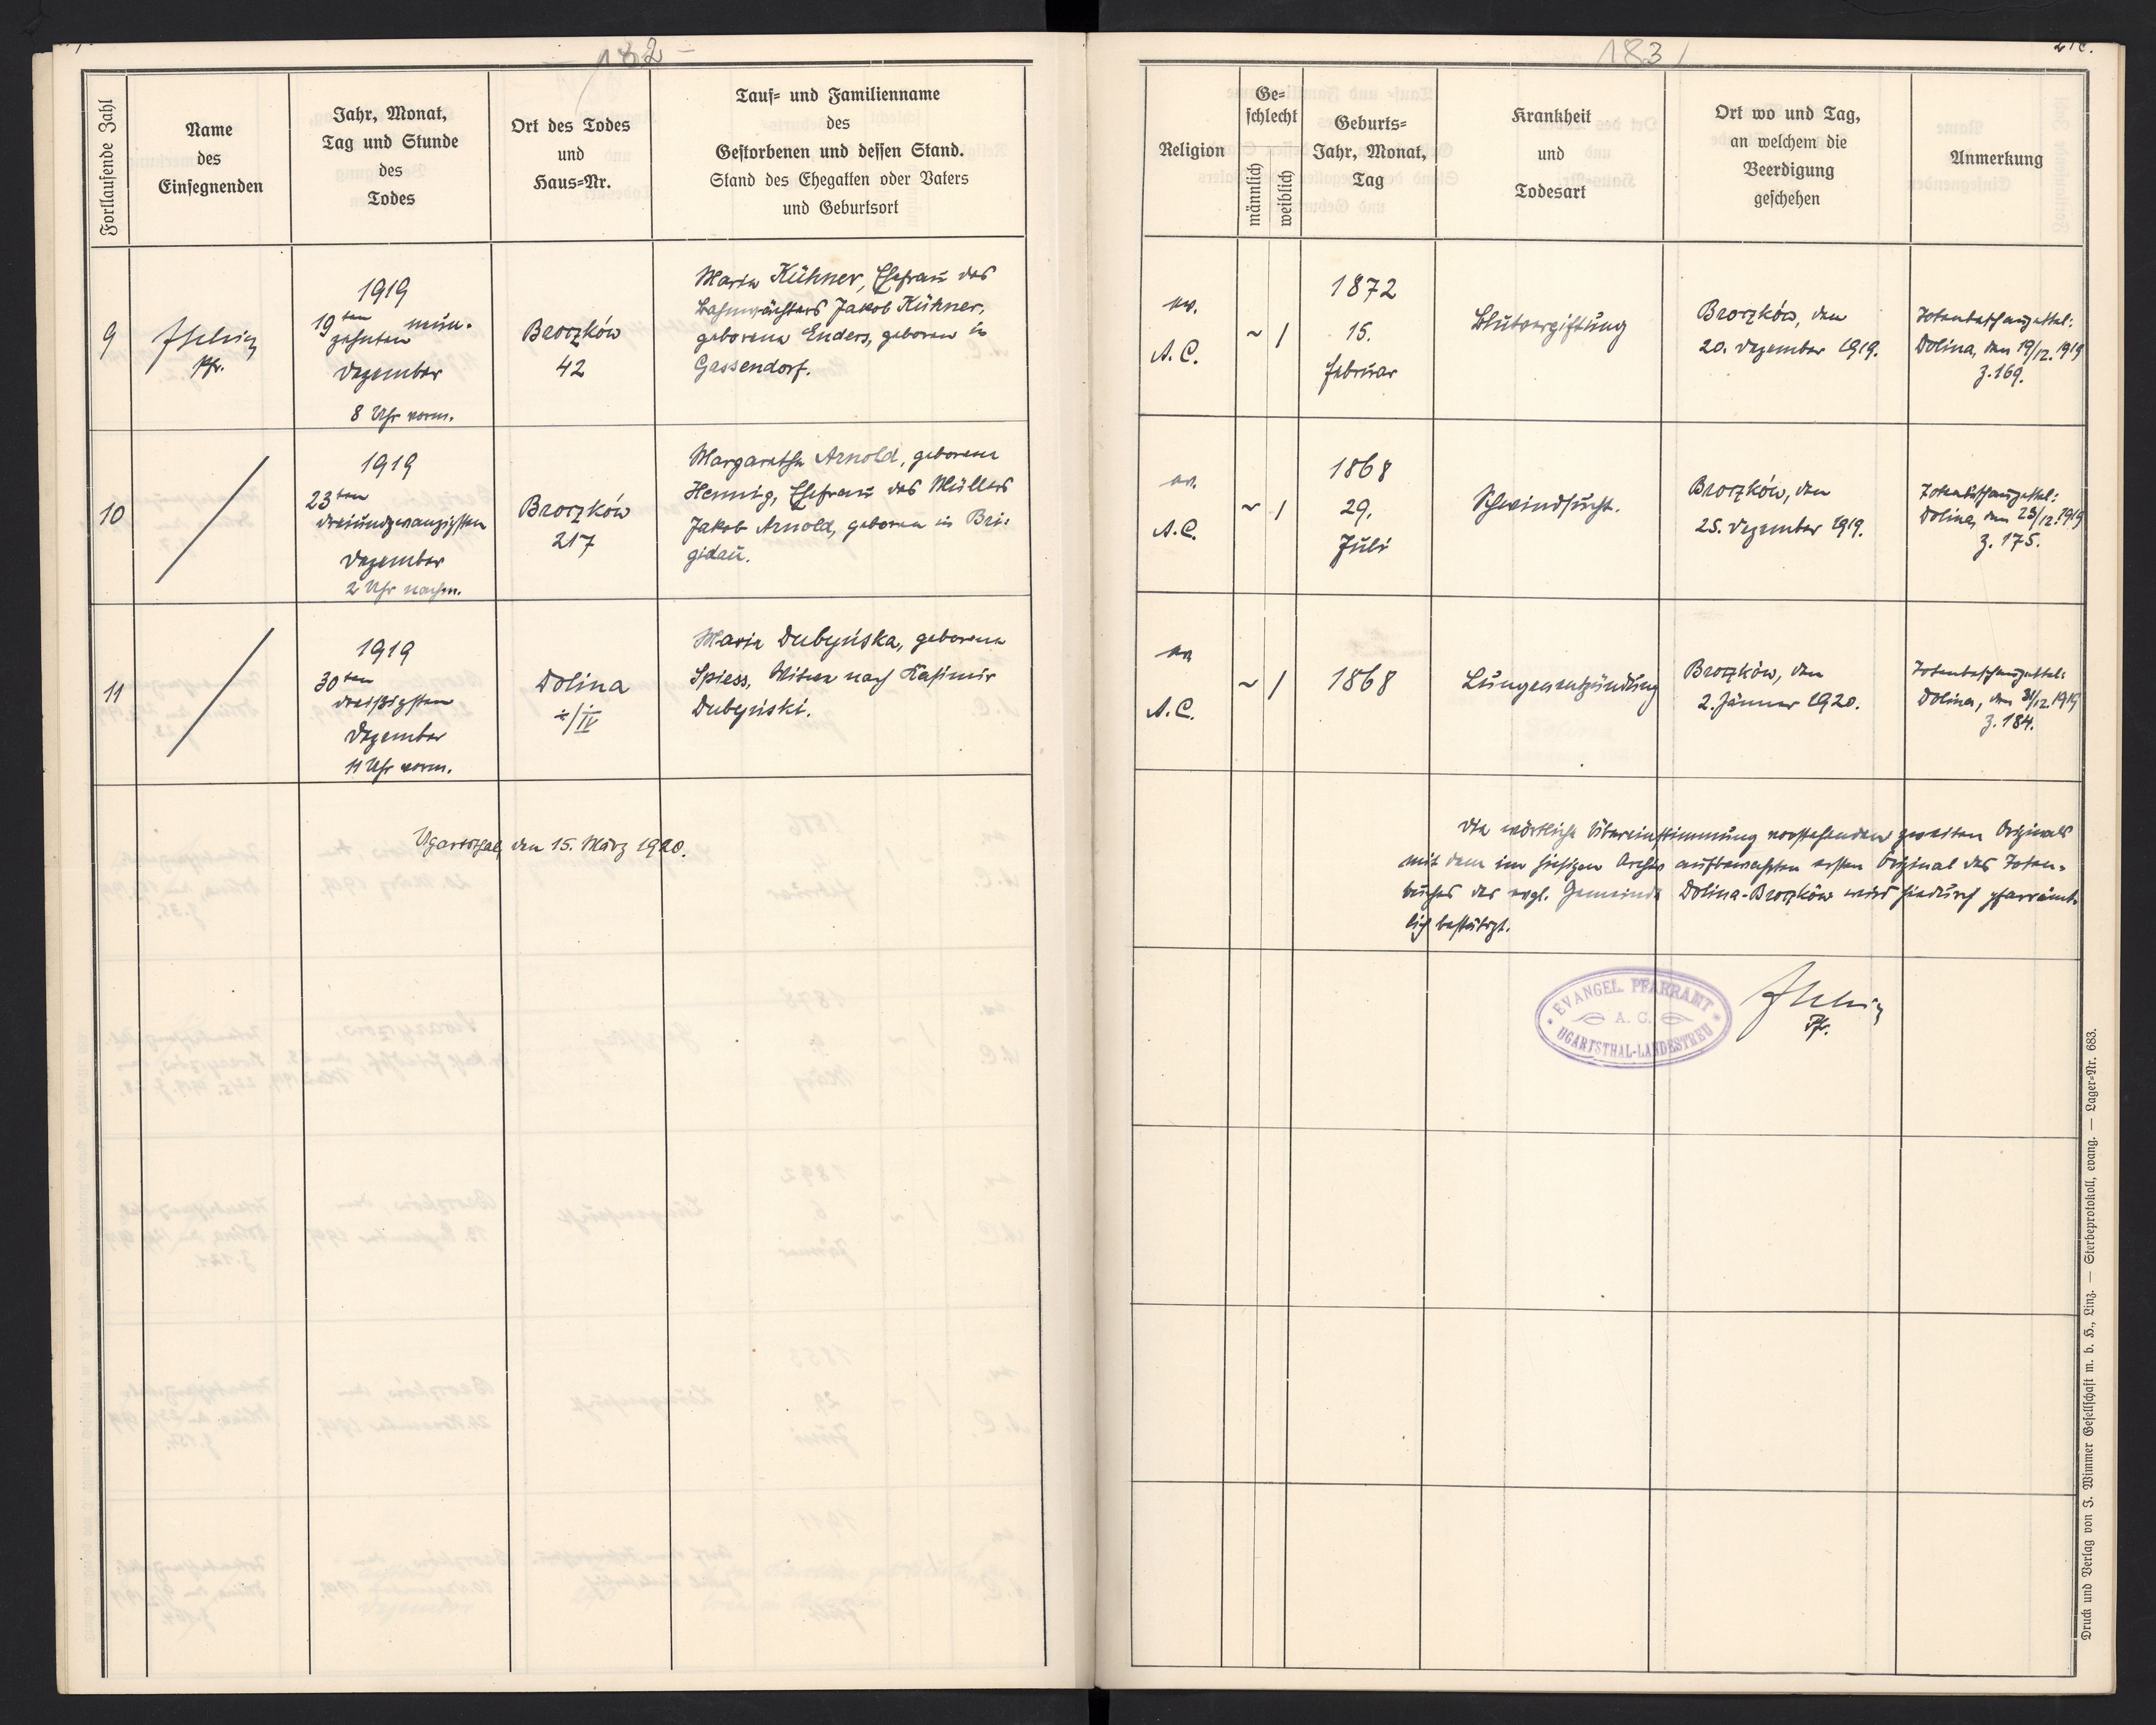 182
Fortlaufende Zahl
Name
des
Einsegnenden
Jahr, Monat,
Tag und Stunde
des
Todes
Ort des Todes
und
Haus=Nr.
Tauf= und Familienname
des
Gestorbenen und dessen Stand.
Stand des Ehegatten oder Vaters
und Geburtsort
9
Pfr.
1919
19ten neun-
zehnten
Dezember
8 Uhr vorm.
Broczków
42
Maria Kühner, Ehefrau des
Bahnwächters Jakob Kühner,
geborene Enders, geboren in
Gassendorf.
10
1919
23ten
dreiundzwanzigsten
Dezember
2 Uhr nachm.
Broczków
217
Margaretha Arnold, geborene
Hennig, Ehefrau des Müllers
Jakob Arnold, geboren in Bri=
gidau.
11
1919
30ten
dreißigsten
Dezember
11 Uhr vorm.
Dolina
/IV
Maria Dubyńska, geborene
Spiess, Witwe nach Kasimir
Dubyński.
Ugartsthal, den 15. März 1920.
183
Religion
Ge=
schlecht
männlich
weiblich
Geburts=
Jahr, Monat,
Tag
Krankheit
und
Todesart
Ort wo und Tag,
an welchem die
Beerdigung
geschehen
Anmerkung
ev.
A.C.
~ /
1872
15.
Februar
Blutvergiftung
Broczków, den
20. Dezember 1919.
Totenbeschauzettel:
Dolina, den 19/12.1919
Z.169.
ev.
A.C.
~ /
1868
29.
Juli
Schwindsucht.
Broczków, den
25. Dezember 1919.
Totenbeschauzettel:
Dolina, den 23/12.1919
Z. 175.
ev.
A.C.
~ /
1868
Lungenentzündung
Broczków, den
2. Jänner 1920.
Totenbeschauzettel:
Dolina, den 31/12.1919
Z.184.
Die wörtliche Übereinstimmung vorstehenden zweiten Originals
mit dem im hiesigen Archiv aufbewahrten ersten Original des Toten-
buches der evgl. Gemeinde Dolina-Broczków wird hiedurch pfarrämt-
lich bestätigt.
EVANGEL. PFARRAMT
A. C.
UGARTSTHAL-LANDESTREU
Pfr.
Druck und Verlag von J. Wimmer Gesellschaft m. b. H., Linz. — Sterbeprotokoll, evang. — Lager=Nr. 683.